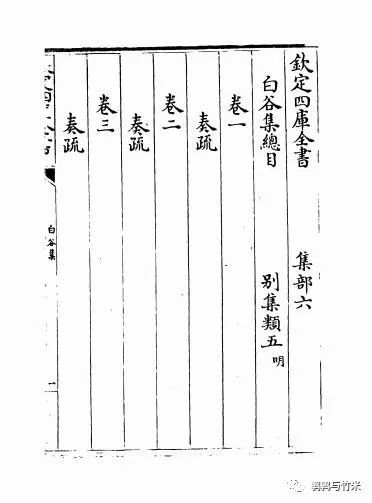 欽定四庫全書 集部六
白谷集總目 別集類五 明
卷一
奏疏
卷二
奏疏
卷三
奏疏
白谷集
一
鹓鶵与竹米